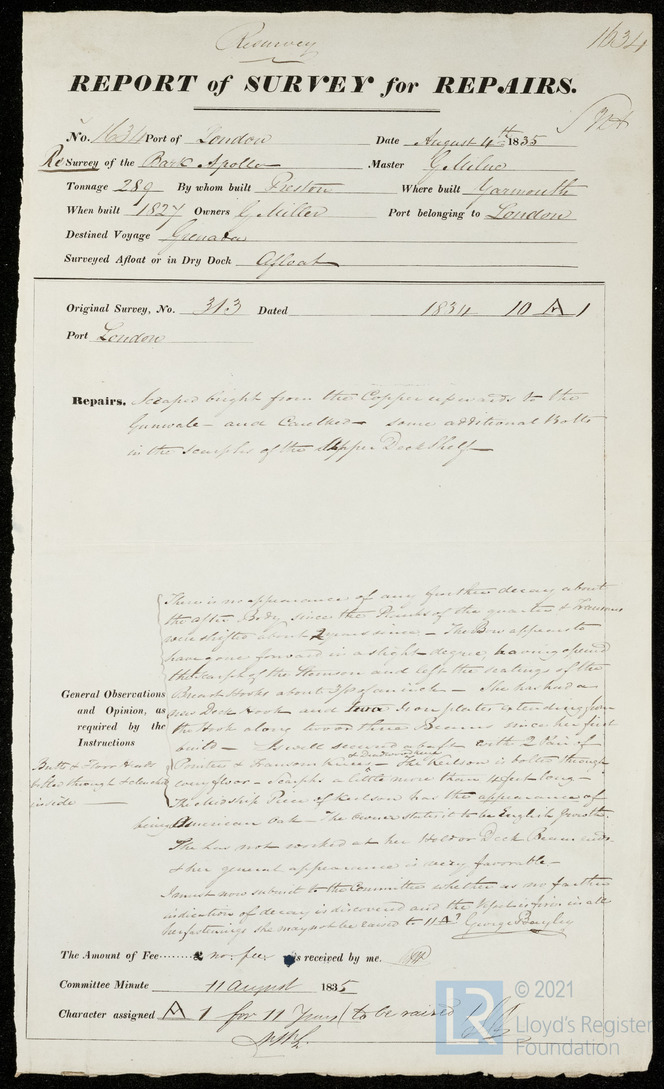 Resurvey
1634
REPORT of SURVEY for REPAIRS.
No. 1634 Port of London Date August 4th 1835
Re Survey of the Bark Apollo Master G Milne
Tonnage 289 By whom built Preston Where built Yarmouth
When built 1827 Owners G Miller Port belonging to London
Destined Voyage Grenada
Surveyed Afloat or in Dry Dock Afloat
Original Survey, No. 313 Dated 1834 10 A 1
Port London
Repairs. Scraped bright from the Copper upwards to the
Gunwale - and Caulked - some additional Bolts
in the scarphs of the Upper Deck Shelf
General Observations
and Opinion, as
required by the
Instructions
There is no appearance of any further decay about
the after Body, since the Planks of the quarter & Transoms
were shifted about 2 years since - The Bow appears to
have gone forward in a slight degree, having opened
the scarph of the Stemson and left the seatings of the
Breast Hooks about 3/8 of an inch - She has had a
new Deck Hook and two Iron plates extending from
the Hook along two or three Beams since her first
build - Is well secured abaft with 2 Pair of
Pointers & Transom Knees - The Keelson is bolted through
every floor - scarphs a little more than 4 feet long -
The Midship Piece of Keelson has the appearance of
being American Oak - The owner states it to be English growth.
She has not worked at her Hold or Deck Beam ends
& her general appearance is very favorable -
I must now submit to the Committee whether as no further
indication of decay is discovered and the Vessel is firm in all
her fastenings she may not be raised to 11 A? George Bayley
Butts & Floor Heads
bolted through & clenched
inside
The Amount of Fee........£ no fee is received by me.
Committee Minute 11 August 1835
Character assigned A 1 for 11 Years (to be raised)
LR
© 2021
Lloyd's Register
Foundation